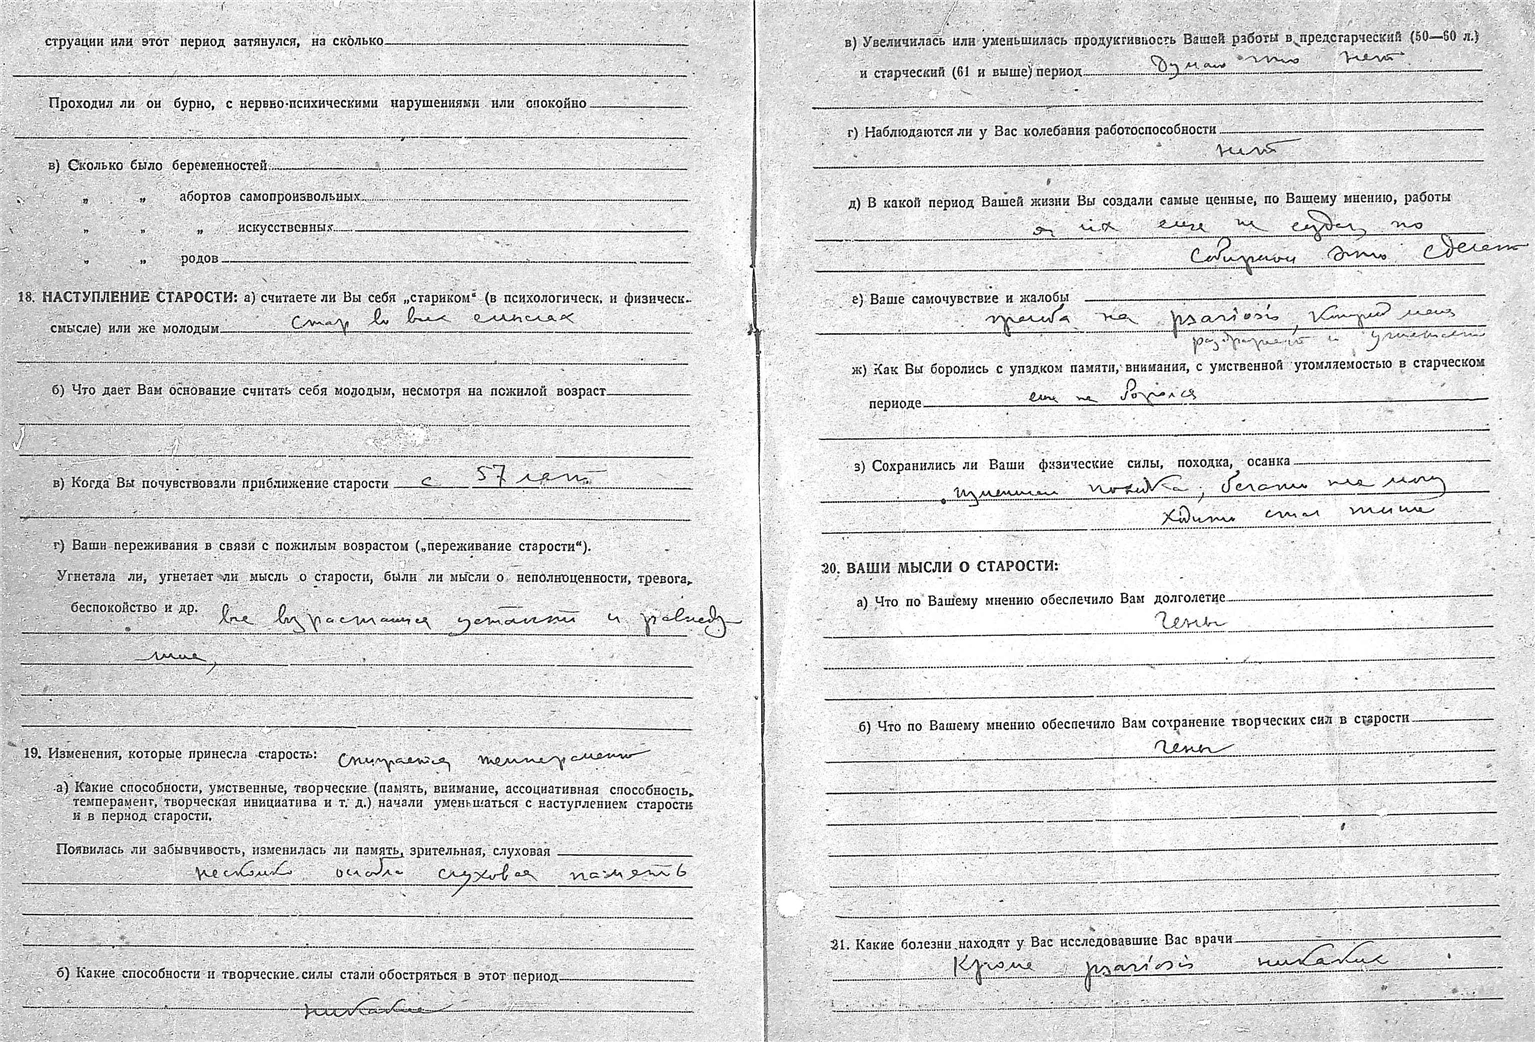 струации или этот период затянулся, на сколько
Проходил ли он бурно, с нервно-психическими нарушениями или спокойно
в) Сколько было беременностей
„ „ абортов самопроизвольных
„ „ „ искусственных
„ „ родов
18. НАСТУПЛЕНИЕ СТАРОСТИ: а) считаете ли Вы себя „стариком“ (в психологическ. и физическ.
смысле) или же молодым стар во всех смыслах
б) Что дает Вам основание считать себя молодым, несмотря на пожилой возраст
в) Когда Вы почувствовали приближение старости с 57 лет
г) Ваши переживания в связи с пожилым возрастом („переживание старости“).
Угнетала ли, угнетает ли мысль о старости, были ли мысли о неполноценности, тревога,
беспокойство и др. все возрастающая усталость и равноду-
шие,
19. Изменения, которые принесла старость: снижается темперамент
а) Какие способности, умственные, творческие (память, внимание, ассоциативная способность,
темперамент, творческая инициатива и т. д.) начали уменьшаться с наступлением старости
и в период старости.
Появилась ли забывчивость, изменилась ли память, зрительная, слуховая
несколько ослабла слуховая память
б) Какие способности и творческие силы стали обостряться в этот период
никакие
в) Увеличилась или уменьшилась продуктивность Вашей работы в предстарческий (50—60 л.)
и старческий (61 и выше) период Думаю что нет
г) Наблюдаются ли у Вас колебания работоспособности
нет
д) В какой период Вашей жизни Вы создали самые ценные, по Вашему мнению, работы
я их еще не создал, но
собираюсь это сделать
е) Ваше самочувствие и жалобы
жалоба на psariosis, который меня
раздражает и угнетает
ж) Как Вы боролись с упадком памяти, внимания, с умственной утомляемостью в старческом
периоде еще не боролся
з) Сохранились ли Ваши физические силы, походка, осанка
изменилась походка, бегать не могу
ходить стал тише
20. ВАШИ МЫСЛИ О СТАРОСТИ:
а) Что по Вашему мнению обеспечило Вам долголетие
Гены
б) Что по Вашему мнению обеспечило Вам сохранение творческих сил в старости
Гены
21. Какие болезни находят у Вас исследовавшие Вас врачи
Кроме psariosis никаких